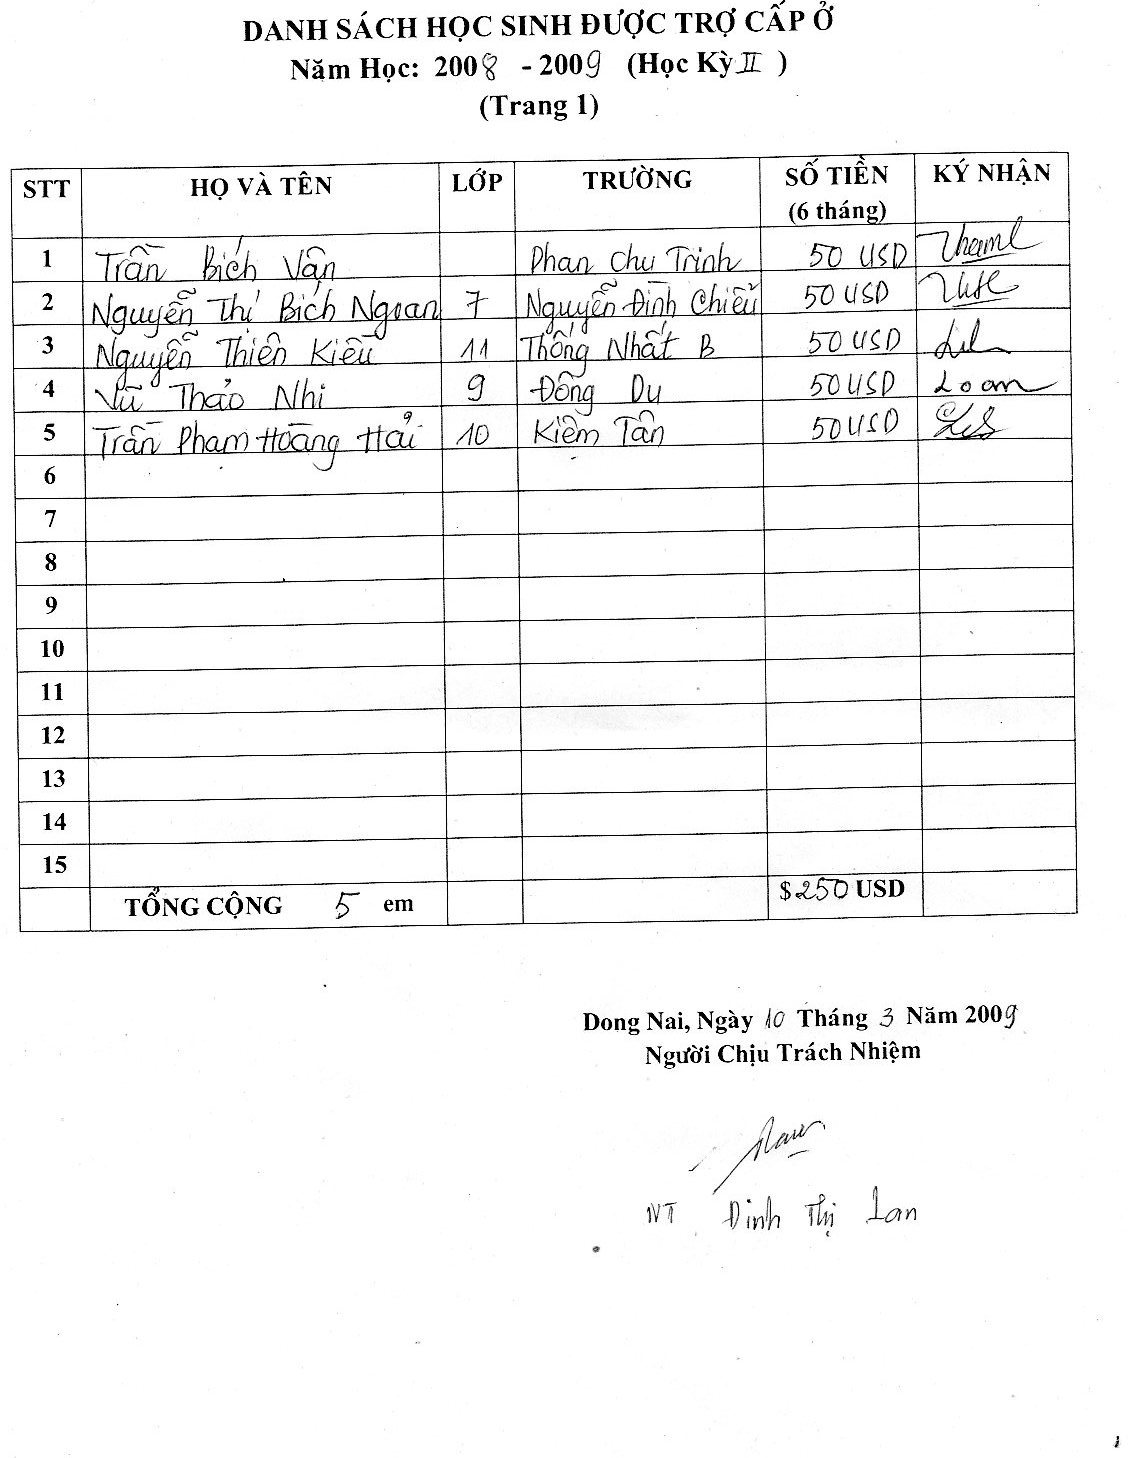 DANH SÁCH HỌC SINH ĐƯỢC TRỢ CẤP Ở
Năm Học: 2008 - 2009 (Học Kỳ II )
(Trang 1)
STT HỌ VÀ TÊN LỚP TRƯỜNG SỐ TIỀN (6 tháng) KÝ NHẬN
1 Trần Bích Vân Phan Chu Trinh 50 USD
2 Nguyễn Thị Bích Ngoan 7 Nguyễn Đình Chiểu 50 USD
3 Nguyễn Thiên Kiều 11 Thống Nhất B 50 USD
4 Vũ Thảo Nhi 9 Đông Du 50 USD Loan
5 Trần Phạm Hoàng Hải 10 Kiệm Tân 50 USD
6
7
8
9
10
11
12
13
14
15
TỔNG CỘNG 5 em $250 USD
Dong Nai, Ngày 10 Tháng 3 Năm 2009
Người Chịu Trách Nhiệm
NT Đinh Thị Lan